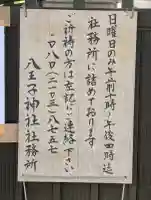 日曜日のみ午前十時〜午後四時迄
社務所に詰めております
ご祈祷の方は左記にご連絡下さい
八王子神社社務所